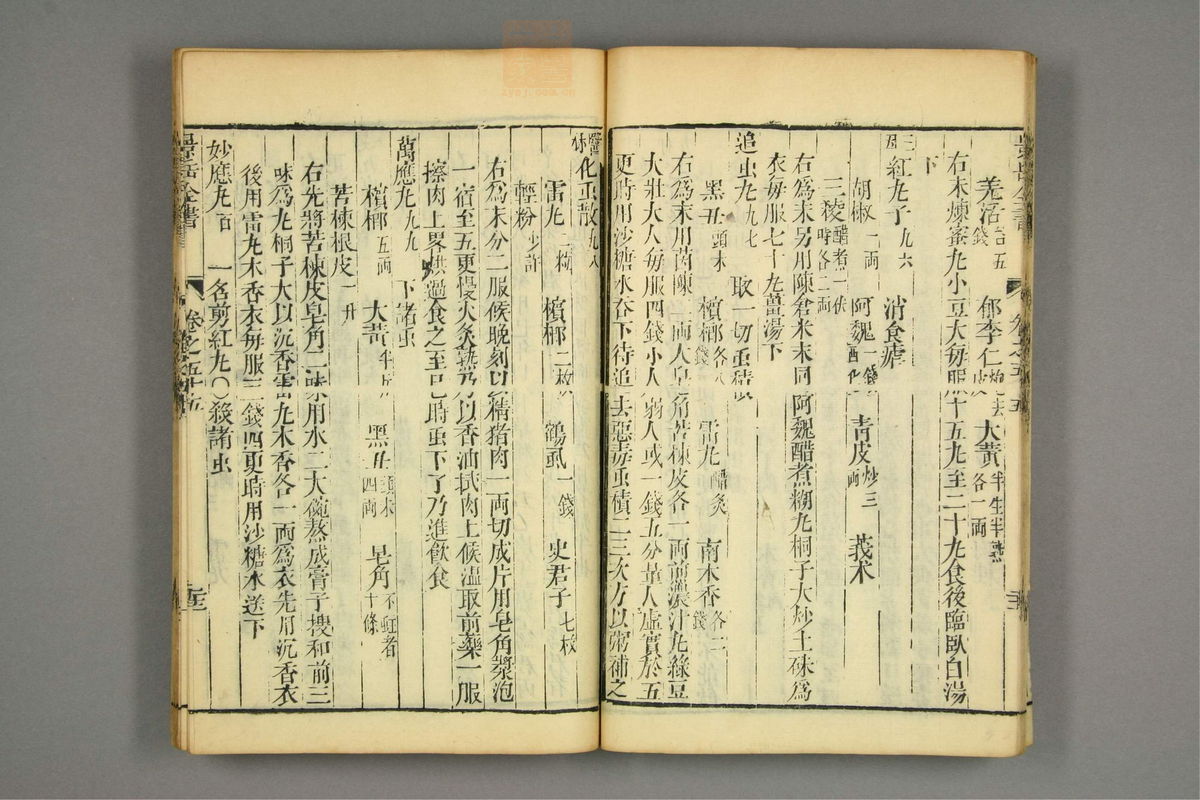 景岳全書 卷之五十五
羌活 各五錢 郁李仁 泡去皮 大黃 半生半熟各一両
右末煉蜜丸小豆大每服十五丸至二十丸食後臨臥白湯
下
紅丸子 九六 消食瘧
胡椒 一両 阿魏 一錢醋化 青皮 炒三両 莪术
三稜 醋煮一伏時各二両
右為末另用陳倉米末同阿魏醋煮糊丸桐子大炒土硃為
衣每服七十丸薑湯下
追虫丸 九七 取一切虫積
黑丑 頭末 檳榔 各八錢 雷丸 醋炙 南木香 各二錢
右為末用茵陳一両大皂角苦楝皮各一両前濃汁丸綠豆
大壯大人每服四錢小人弱人或一錢五分量人虛實於五
更時用沙糖水吞下待追去惡毒虫積二三次方以粥補之
化虫散 九八
雷丸 二粒 檳榔 二枚 鶴虱 一錢 史君子 七枚
輕粉 少許
右為末分二服候晚刻以精猪肉一両切成片用皂角漿泡
一宿至五更慢火炙熟乃以香油拭肉上候溫取前藥一服
擦肉上畧烘過食之至巳時虫下了乃進飲食
萬應丸 九九 下諸虫
檳榔 五両 大黃 半斤 黑丑 頭末四両 皂角 不蛀者十條
苦楝根皮 一斤
右先將苦楝皮皂角二味用水二大碗熬成膏子搜和前三
味為丸桐子大以沉香雷丸木香各一両為衣先用沉香衣
後用雷丸木香衣每服三錢四更時用沙糖水送下
妙應丸 百 一名剪紅丸〇殺諸虫
景岳全書 卷之五十五